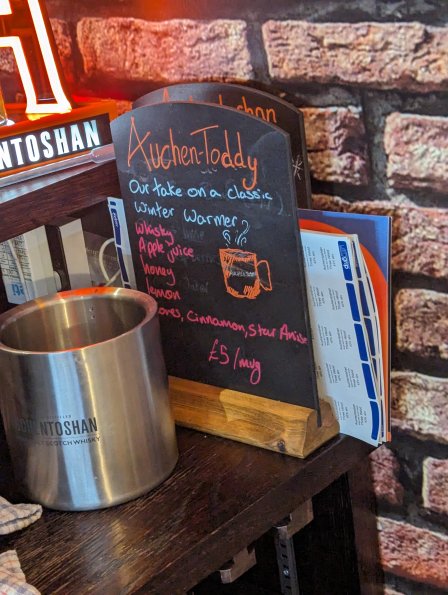 NTOSHAN
Auchen-Toddy
Our take on a classic
Winter Warmer
Whisky
Apple juice
Honey
lemon
Cinnamon, Star Anise
£5/mug
NTOSHAN
SCOTCH WHISKY